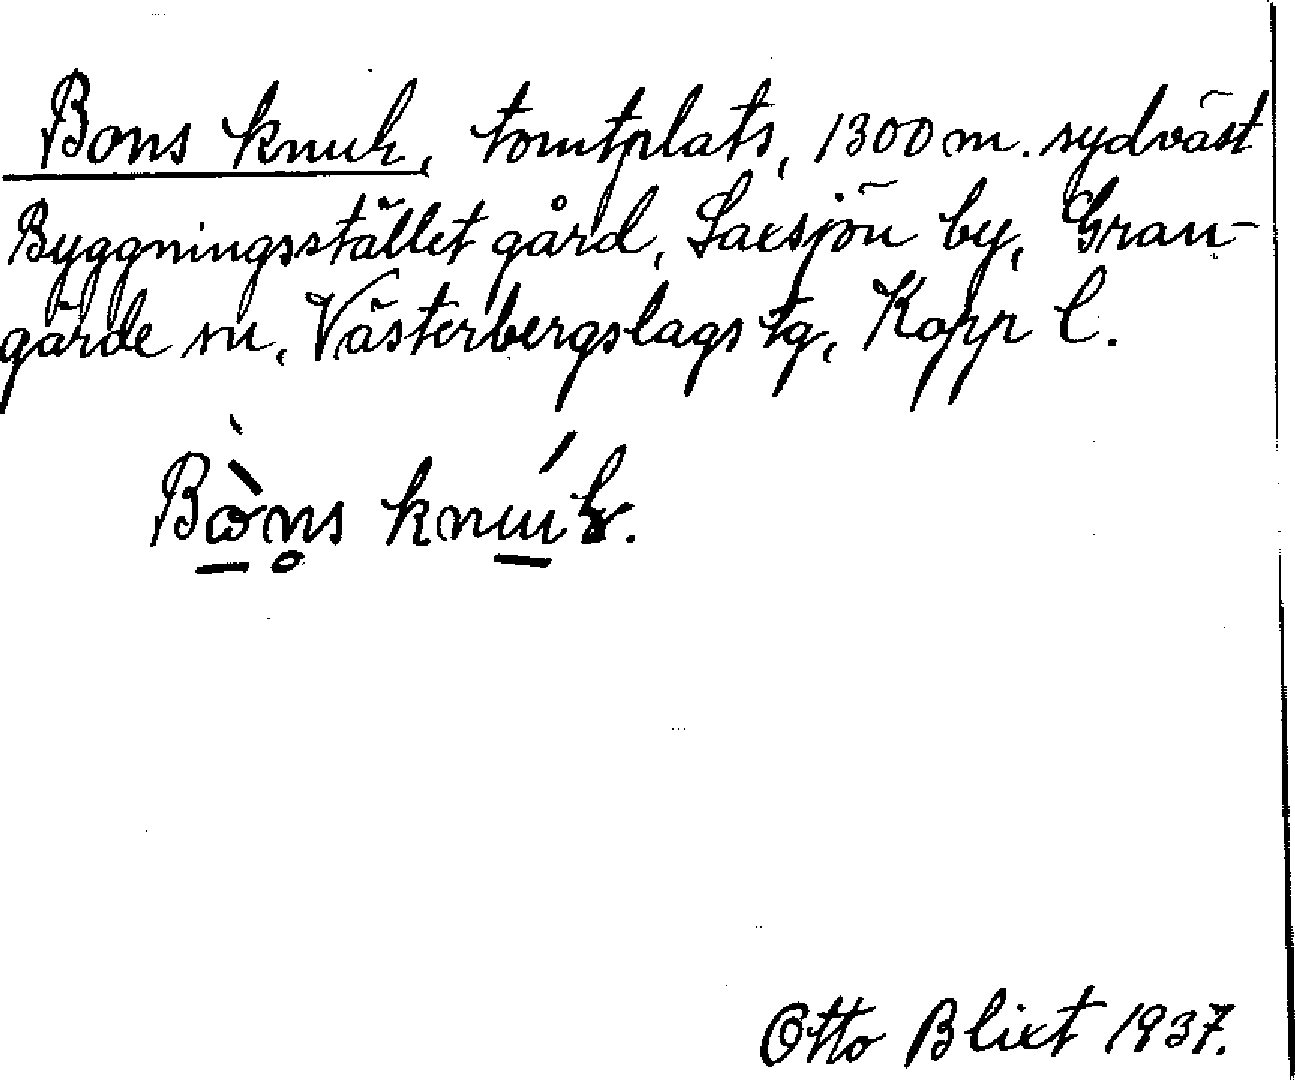 Bons knuk, tomtplats, 1300 m. sydväst
Byggningsstället gård, Saxsjön by, Gran-
gärde sn, Västerbergslags tg, Kopp l.
Bòns knuk.
Otto Blixt 1937.